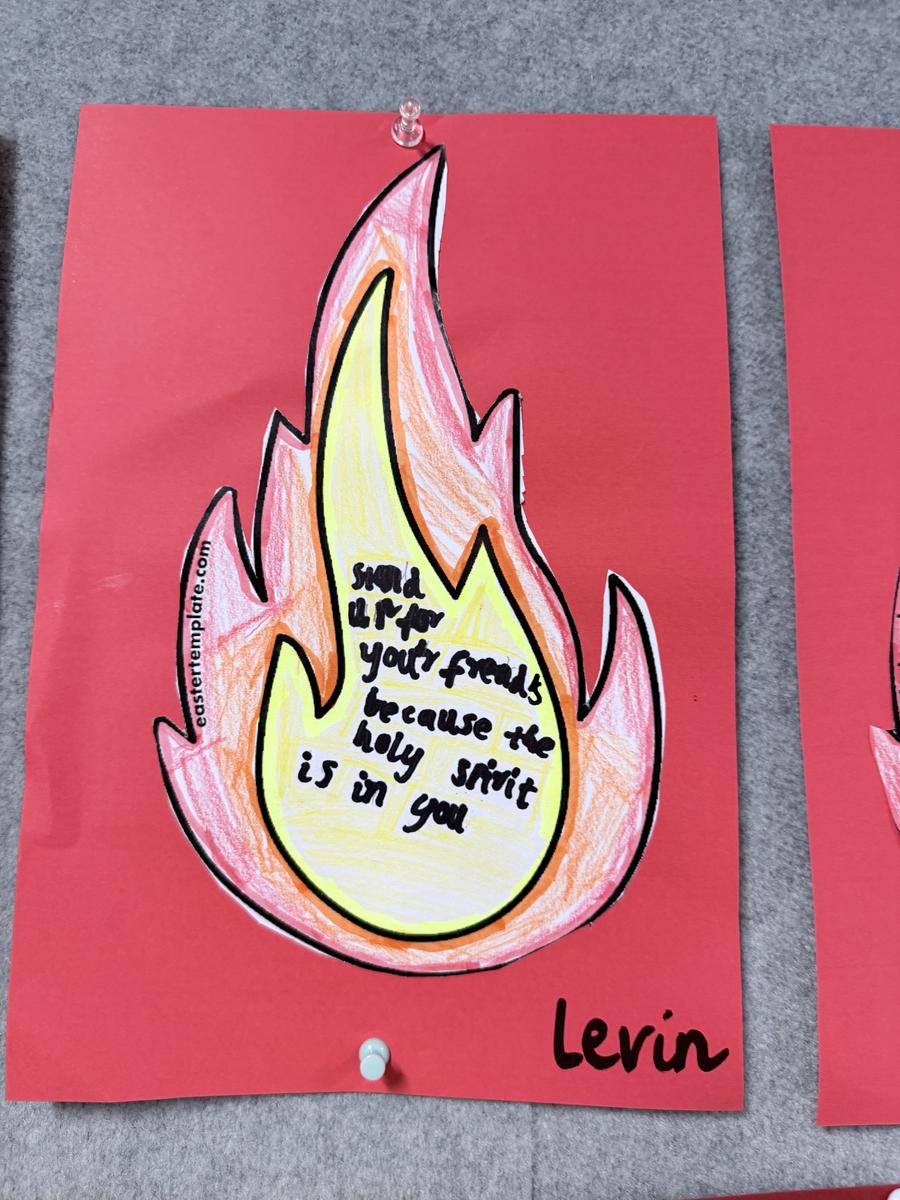 stand
up for
your freads
because the
holy spirit
is in you
eastertemplate.com
Levin